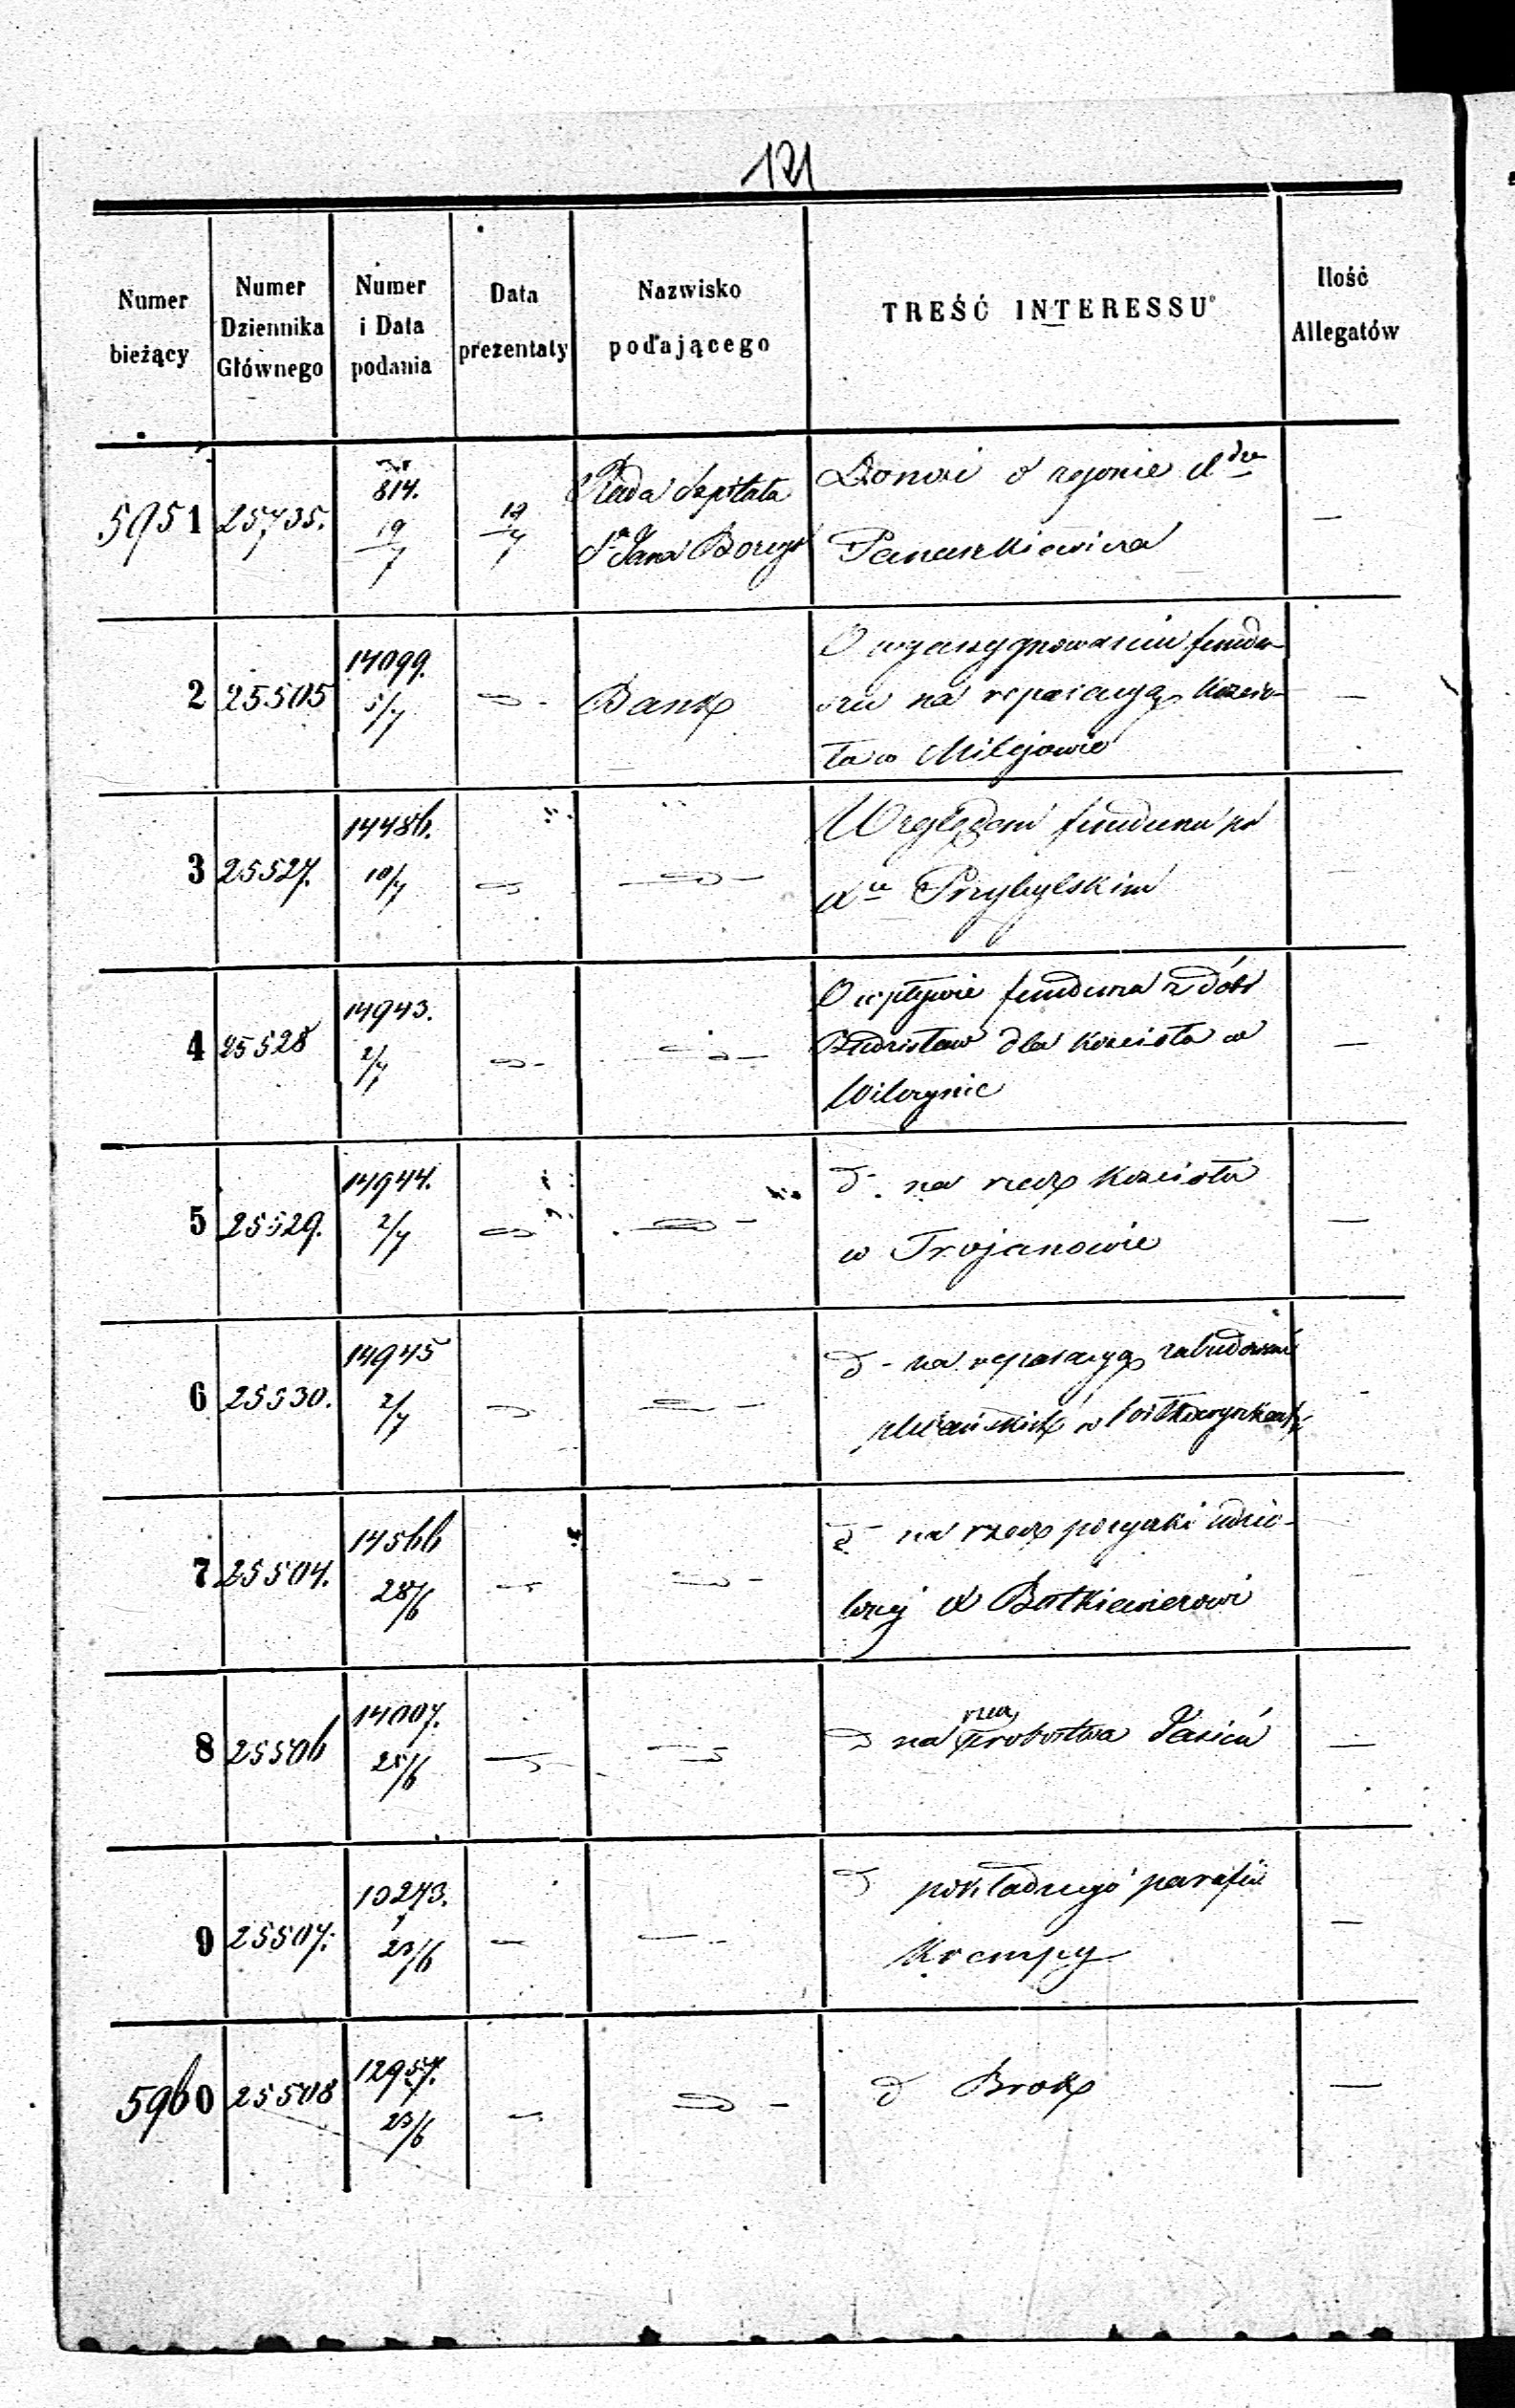 121
Numer bieżący
Numer Dziennika Głównego
Numer i Data podania
Data prezentaty
Nazwisko podającego
TREŚĆ INTERESSU
Ilość Allegatów
5951 25735. 814. 19/7 19/7 Rada Szpitala Donosi o zgonie
Sgo Jana Bożego —
2 25505 14099. 5/7 Bank O wyassygnowaniu fundu-
szu na reparacyą kościo-
ła w Milejowie —
3 25527. 14486. 10/7 Względem funduszu po
Xdzu Przybylskim —
4 25528 14943. 2/7 O wpływie funduszu z dóbr
dla kościoła w
—
5 25529. 14944. 2/7 d- na rzecz kościoła
w Trojanowie —
6 25530. 14945 2/7 d- na reparacyą zabudowań
plebańskich w -
7 25504. 14566 28/6 d- na rzecz pożyczki udzie-
lonej X
8 25506 14007. 25/6 d na rzecz probostwa —
9 25507. 10273. 23/6 d pokładnego parafii
Krempy —
5960 25508 12957. 23/6 d Brok —